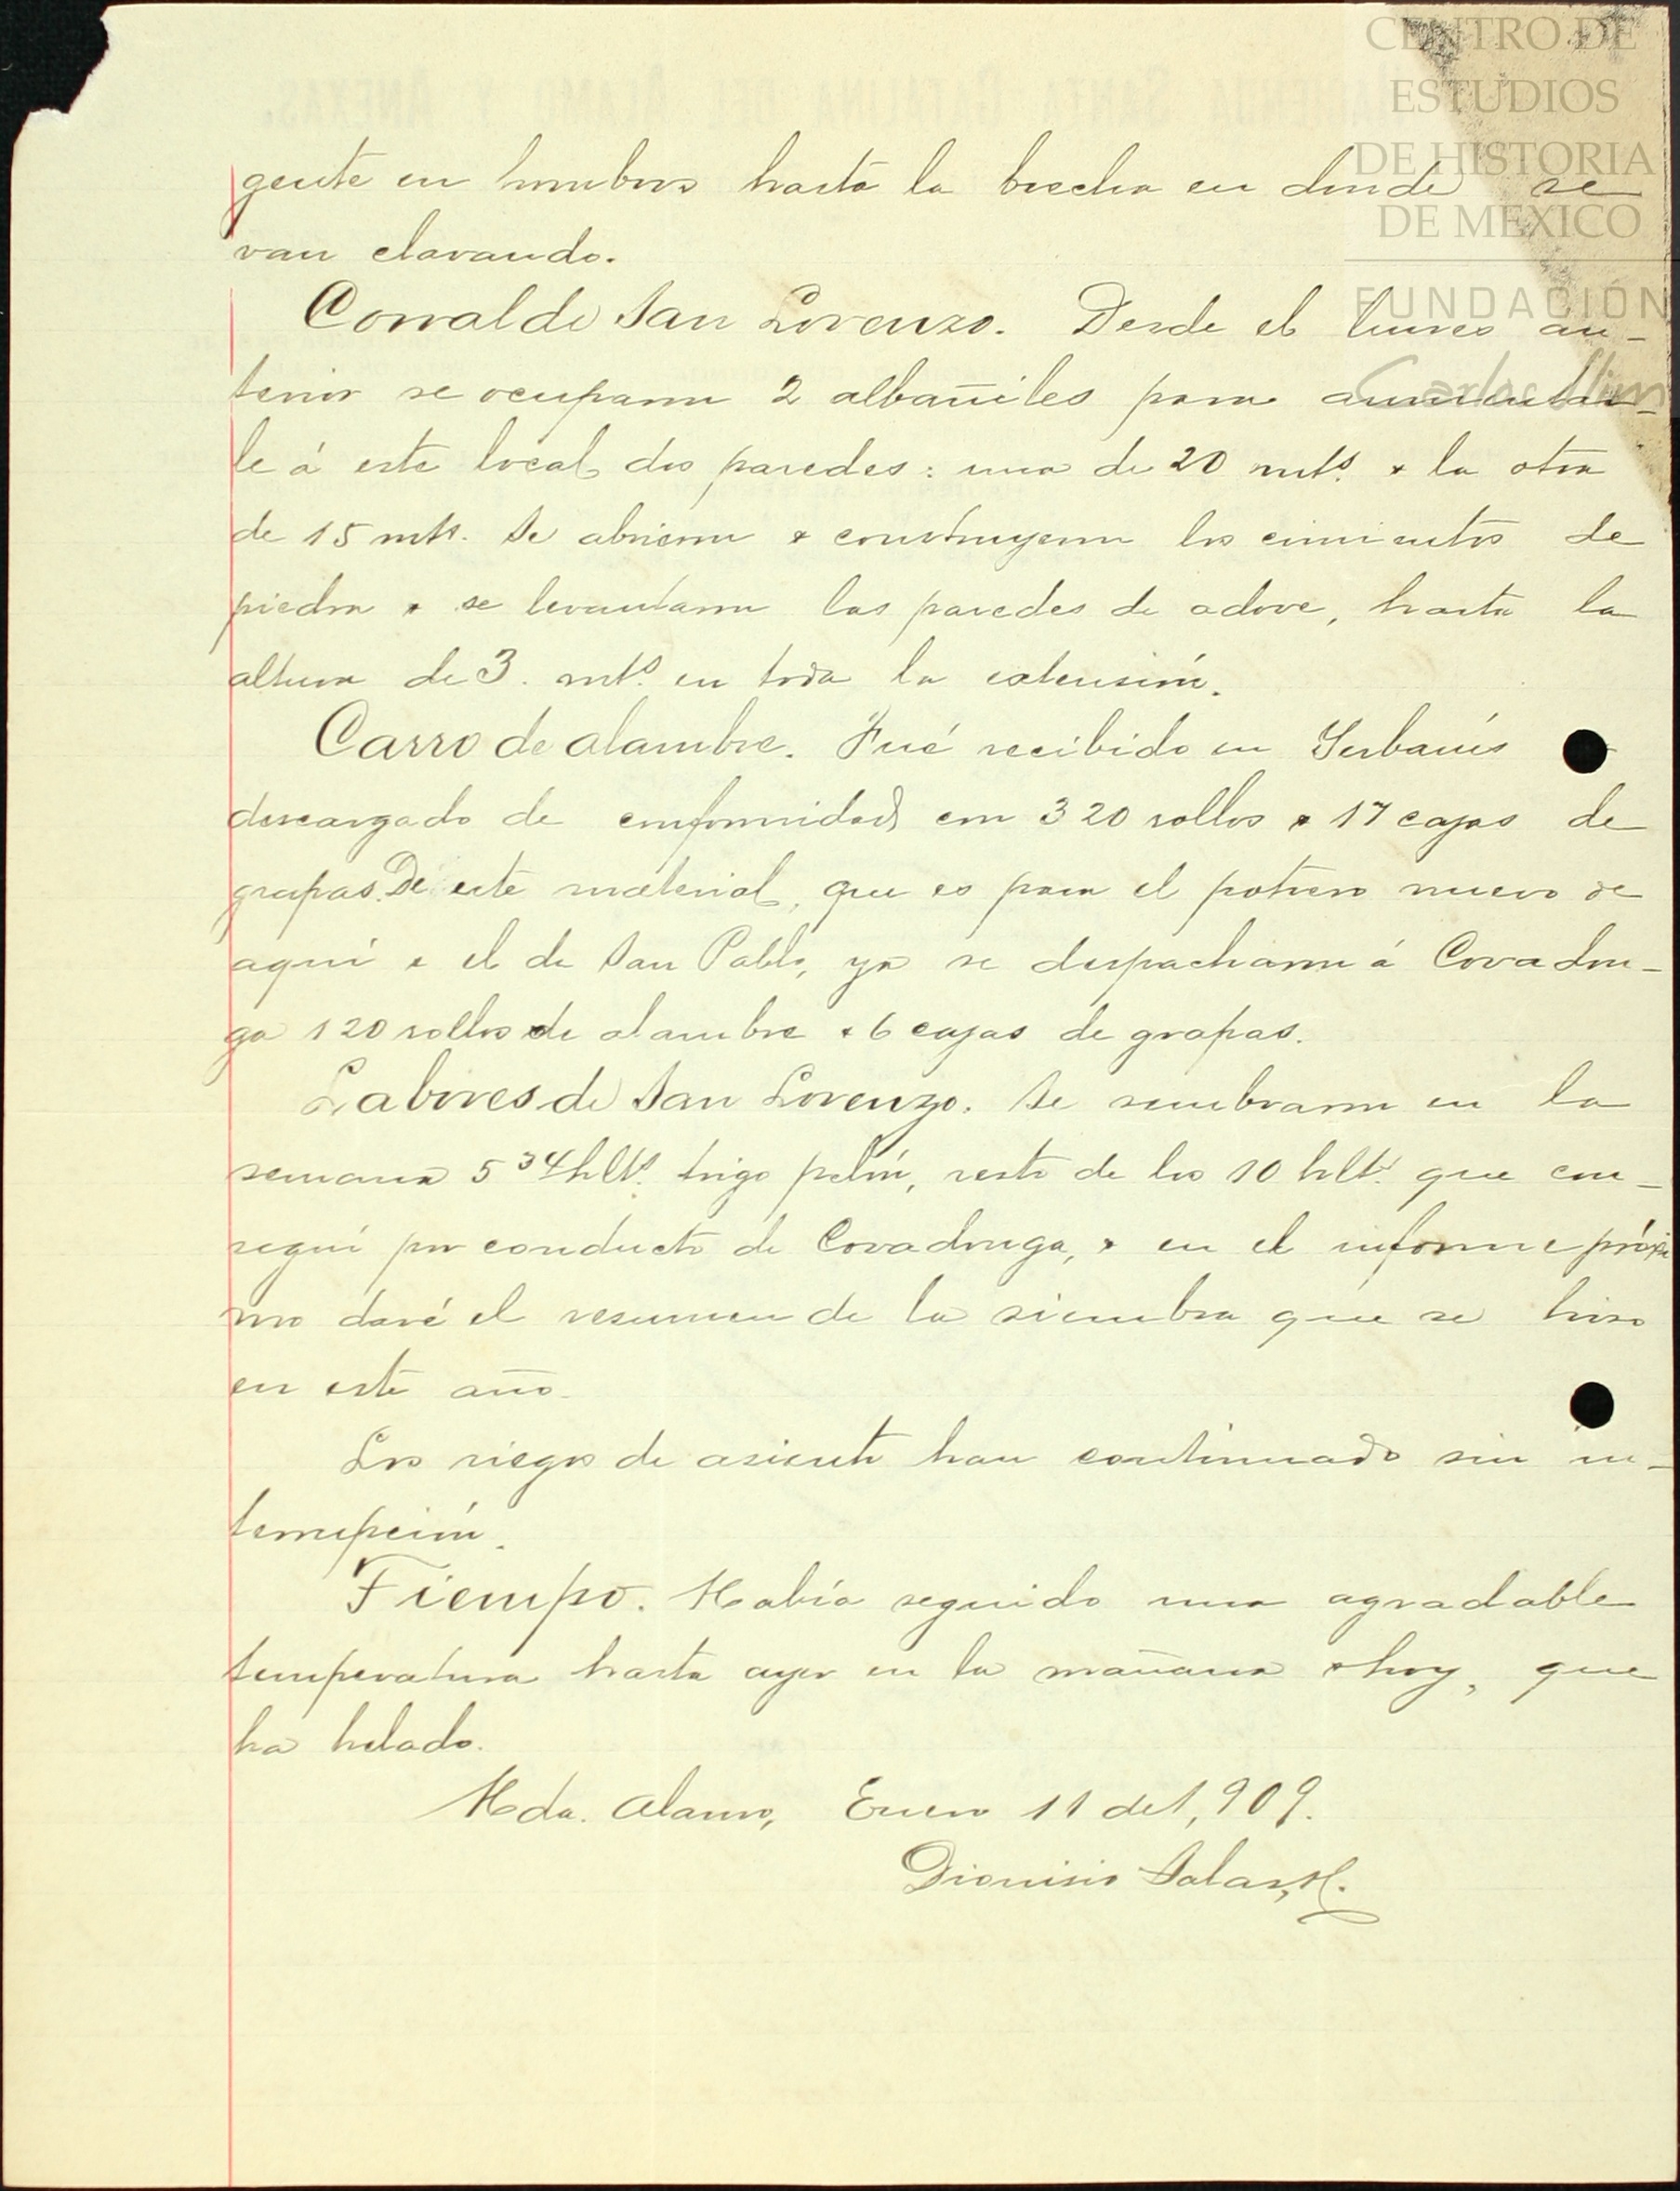 CENTRO DE
ESTUDIOS
DE HISTORIA
DE MEXICO
FUNDACIÓN
Carlos Slim
gente en hombros hasta la brecha en donde se
van clavando.
Corral de San Lorenzo. Desde el lunes an-
terior se ocuparon 2 albañiles para aumentar-
le á este local dos paredes: una de 20 mts. & la otra
de 15 mts. Se abrieron & construyeron los cimientos de
piedra & se levantaron las paredes de adove, hasta la
altura de 3. mts. en toda la extensión.
Carro de alambre. Fué recibido en Yerbanís
descargado de conformidad con 320 rollos & 17 cajas de
grapas. De este material, que es para el potrero nuevo de
aquí & el de San Pablo, ya se despacharon á Covadon-
ga 120 rollos de alambre & 6 cajas de grapas.
Labores de San Lorenzo. Se sembraron en la
semana 5 3/4 hlts. trigo pelón, resto de los 10 hlts. que con-
seguí por conducto de Covadonga, & en el informe próxi
mo daré el resumen de la siembra que se hiso
en este año.
Los riegos de asiento han continuado sin in-
terrupción.
Tiempo. Había seguido una agradable
temperatura hasta ayer en la mañana & hoy, que
ha helado.
Hda. Alamo, Enero 11 de 1,909.
Dionisio Salas, H.